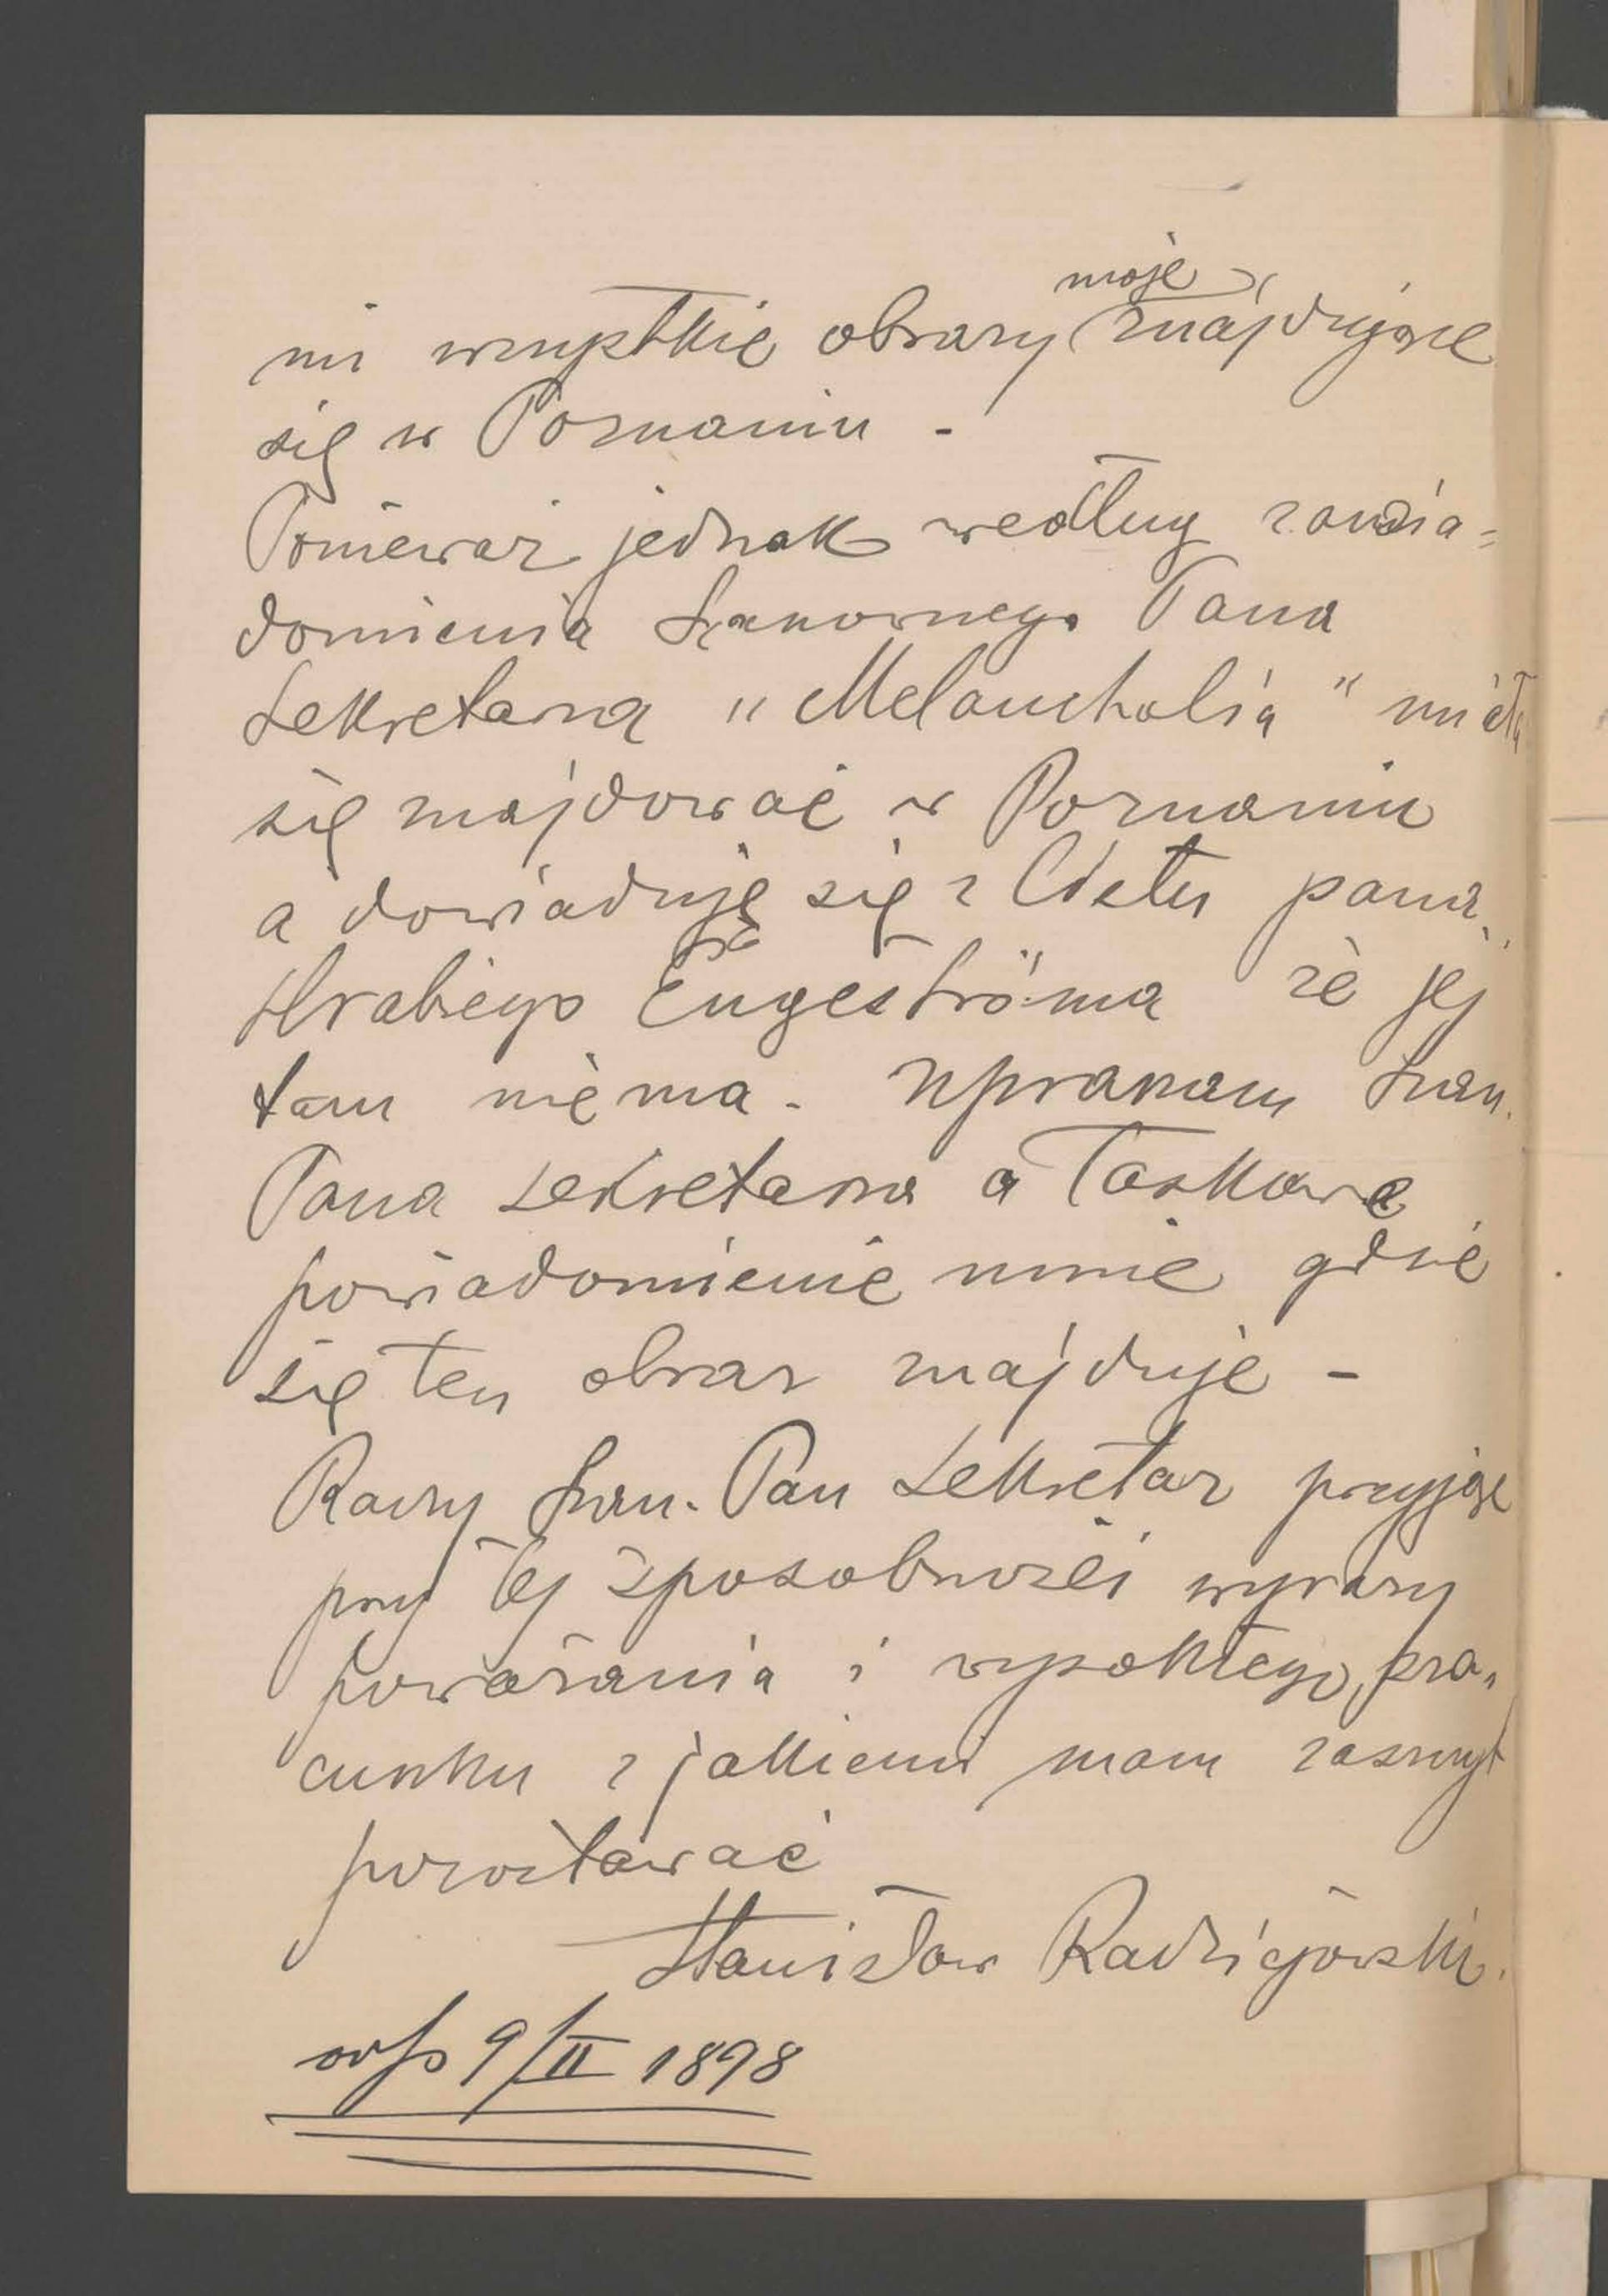 moje
mi wszystkie obrazy znajdujące
się w Poznaniu -
Ponieważ jednak według zawia=
domienia Szanownego Pana
Sekretarza „Melancholia" miała
się znajdować w Poznaniu
a dowiaduję się z listu pana
Hrabiego Engeströma że jej
tam niema. Upraszam Szan.
Pana Sekretarza o łaskawe
powiadomienie mnie gdzie
się ten obraz znajduje -
Raczy Szan. Pan Sekretarz przyjąć
przy tej sposobności wyrazy
poważania i wysokiego sza,
cunku z jakiemi mam zaszczyt
pozostawać
Stanisław Radziejowski.
odp 9/II 1898